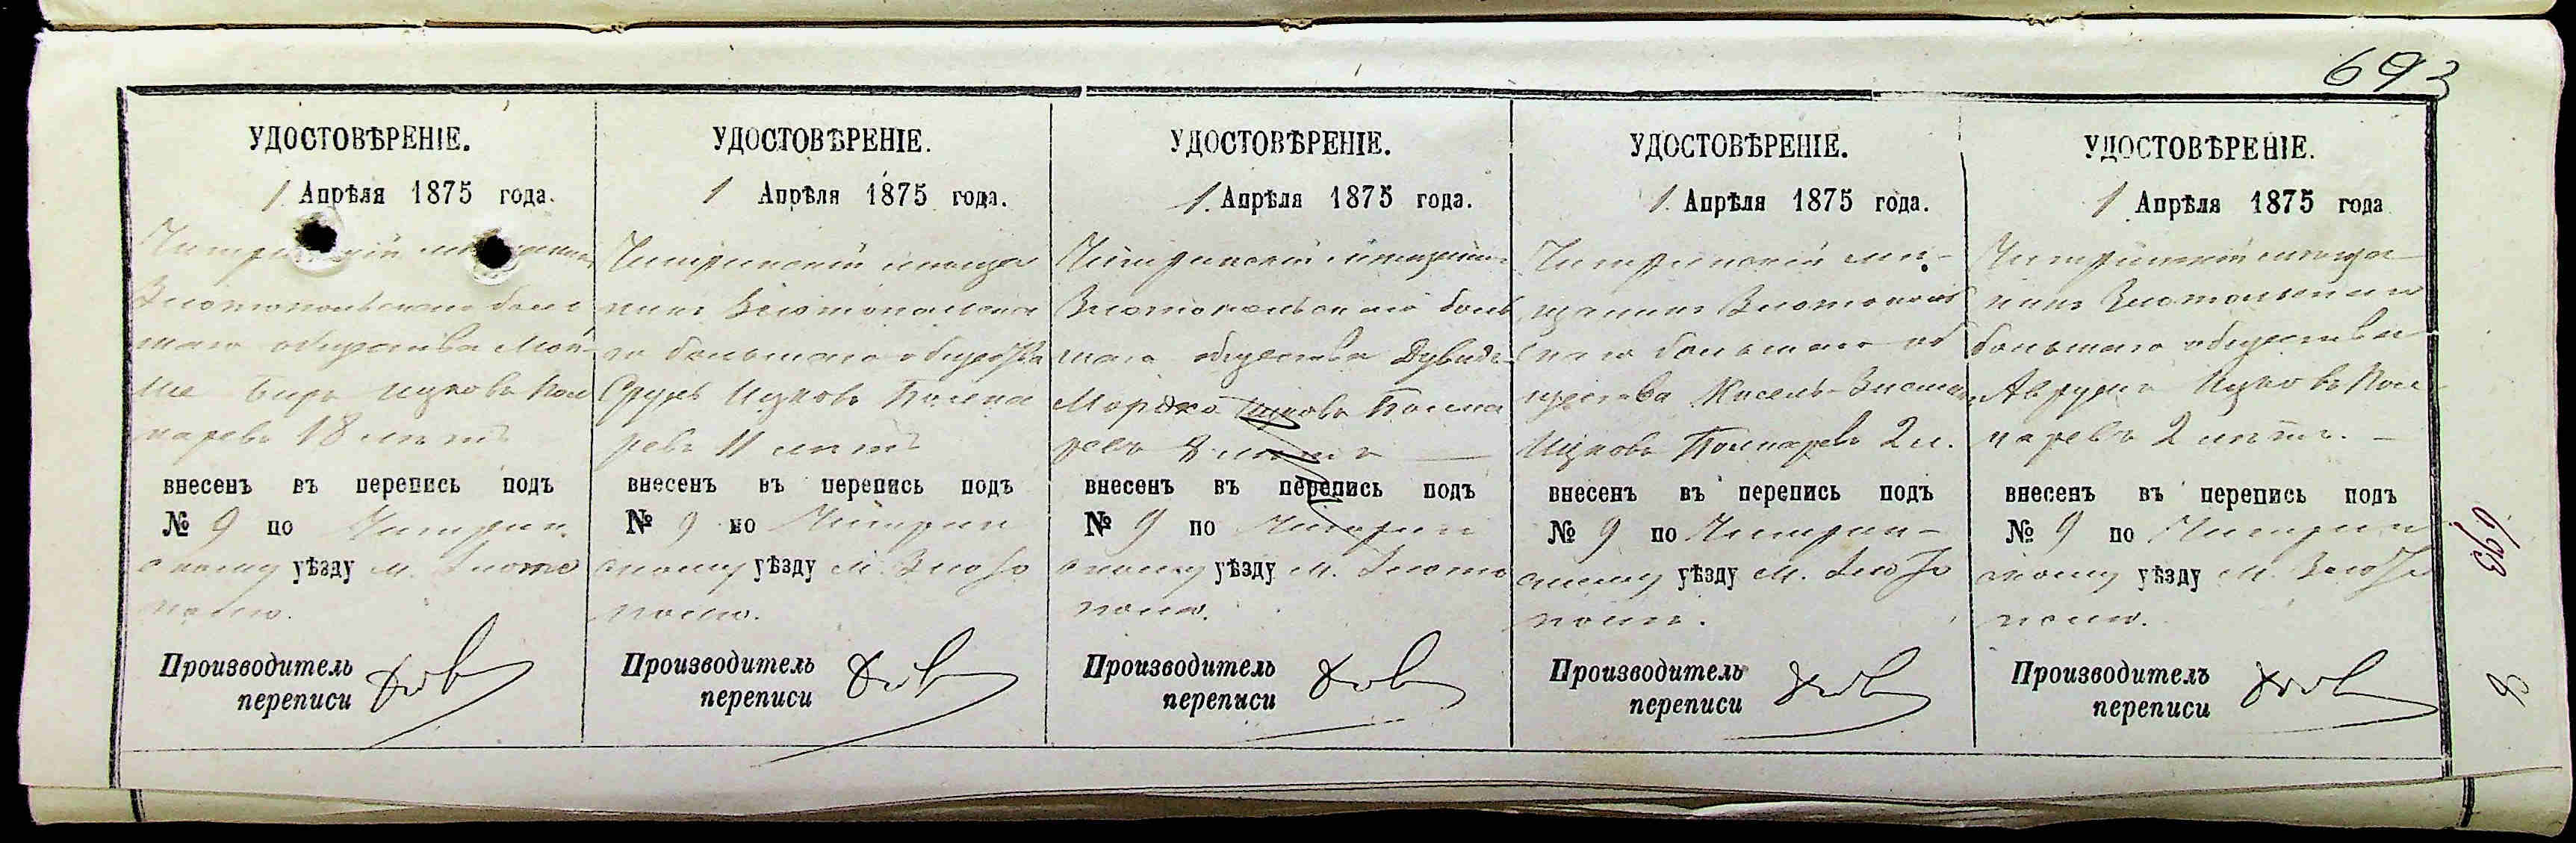 693
УДОСТОВѢРЕНІЕ.
1 Апрѣля 1875 года.
Златопольскаго боль
шаго общества Мош-
ко Беръ Ицковъ
18 лѣтъ
внесенъ въ перепись подъ
№ 9 по Чигрин
скому уѣзду м. Злато
полю.
Производитель
переписи
УДОСТОВѢРЕНІЕ.
1 Апрѣля 1875 года.
Чигринскій мѣща
нинъ Златопольска
го большаго общества
Сруль Ицковъ
11 лѣтъ
внесенъ въ перепись подъ
№ 9 по Чигрин
скому уѣзду м. Злато
полю.
Производитель
переписи
УДОСТОВѢРЕНІЕ.
1. Апрѣля 1875 года.
Чигринскій мѣщанинъ
Златопольскаго боль
шаго общества Дувидъ
Мордко Ицковъ
8 лѣтъ
внесенъ въ перепись подъ
№ 9 по Чигрин
скому уѣзду м. Злато
полю.
Производитель
переписи
УДОСТОВѢРЕНІЕ.
1. Апрѣля 1875 года.
Чигринскій мѣ-
щанинъ Златополь
скаго большаго об
щества Кисель-
Ицковъ 2 л.
внесенъ въ перепись подъ
№ 9 по Чигрин-
скому уѣзду м. Злато
полю.
Производитель
переписи
УДОСТОВѢРЕНІЕ.
1 Апрѣля 1875 года
Чигринскій мѣща
нинъ
большаго общества
Аврумъ Ицковъ
2 лѣтъ.
внесенъ въ перепись подъ
№ 9 по Чигрин
скому уѣзду м. Злато
полю.
Производитель
переписи
693